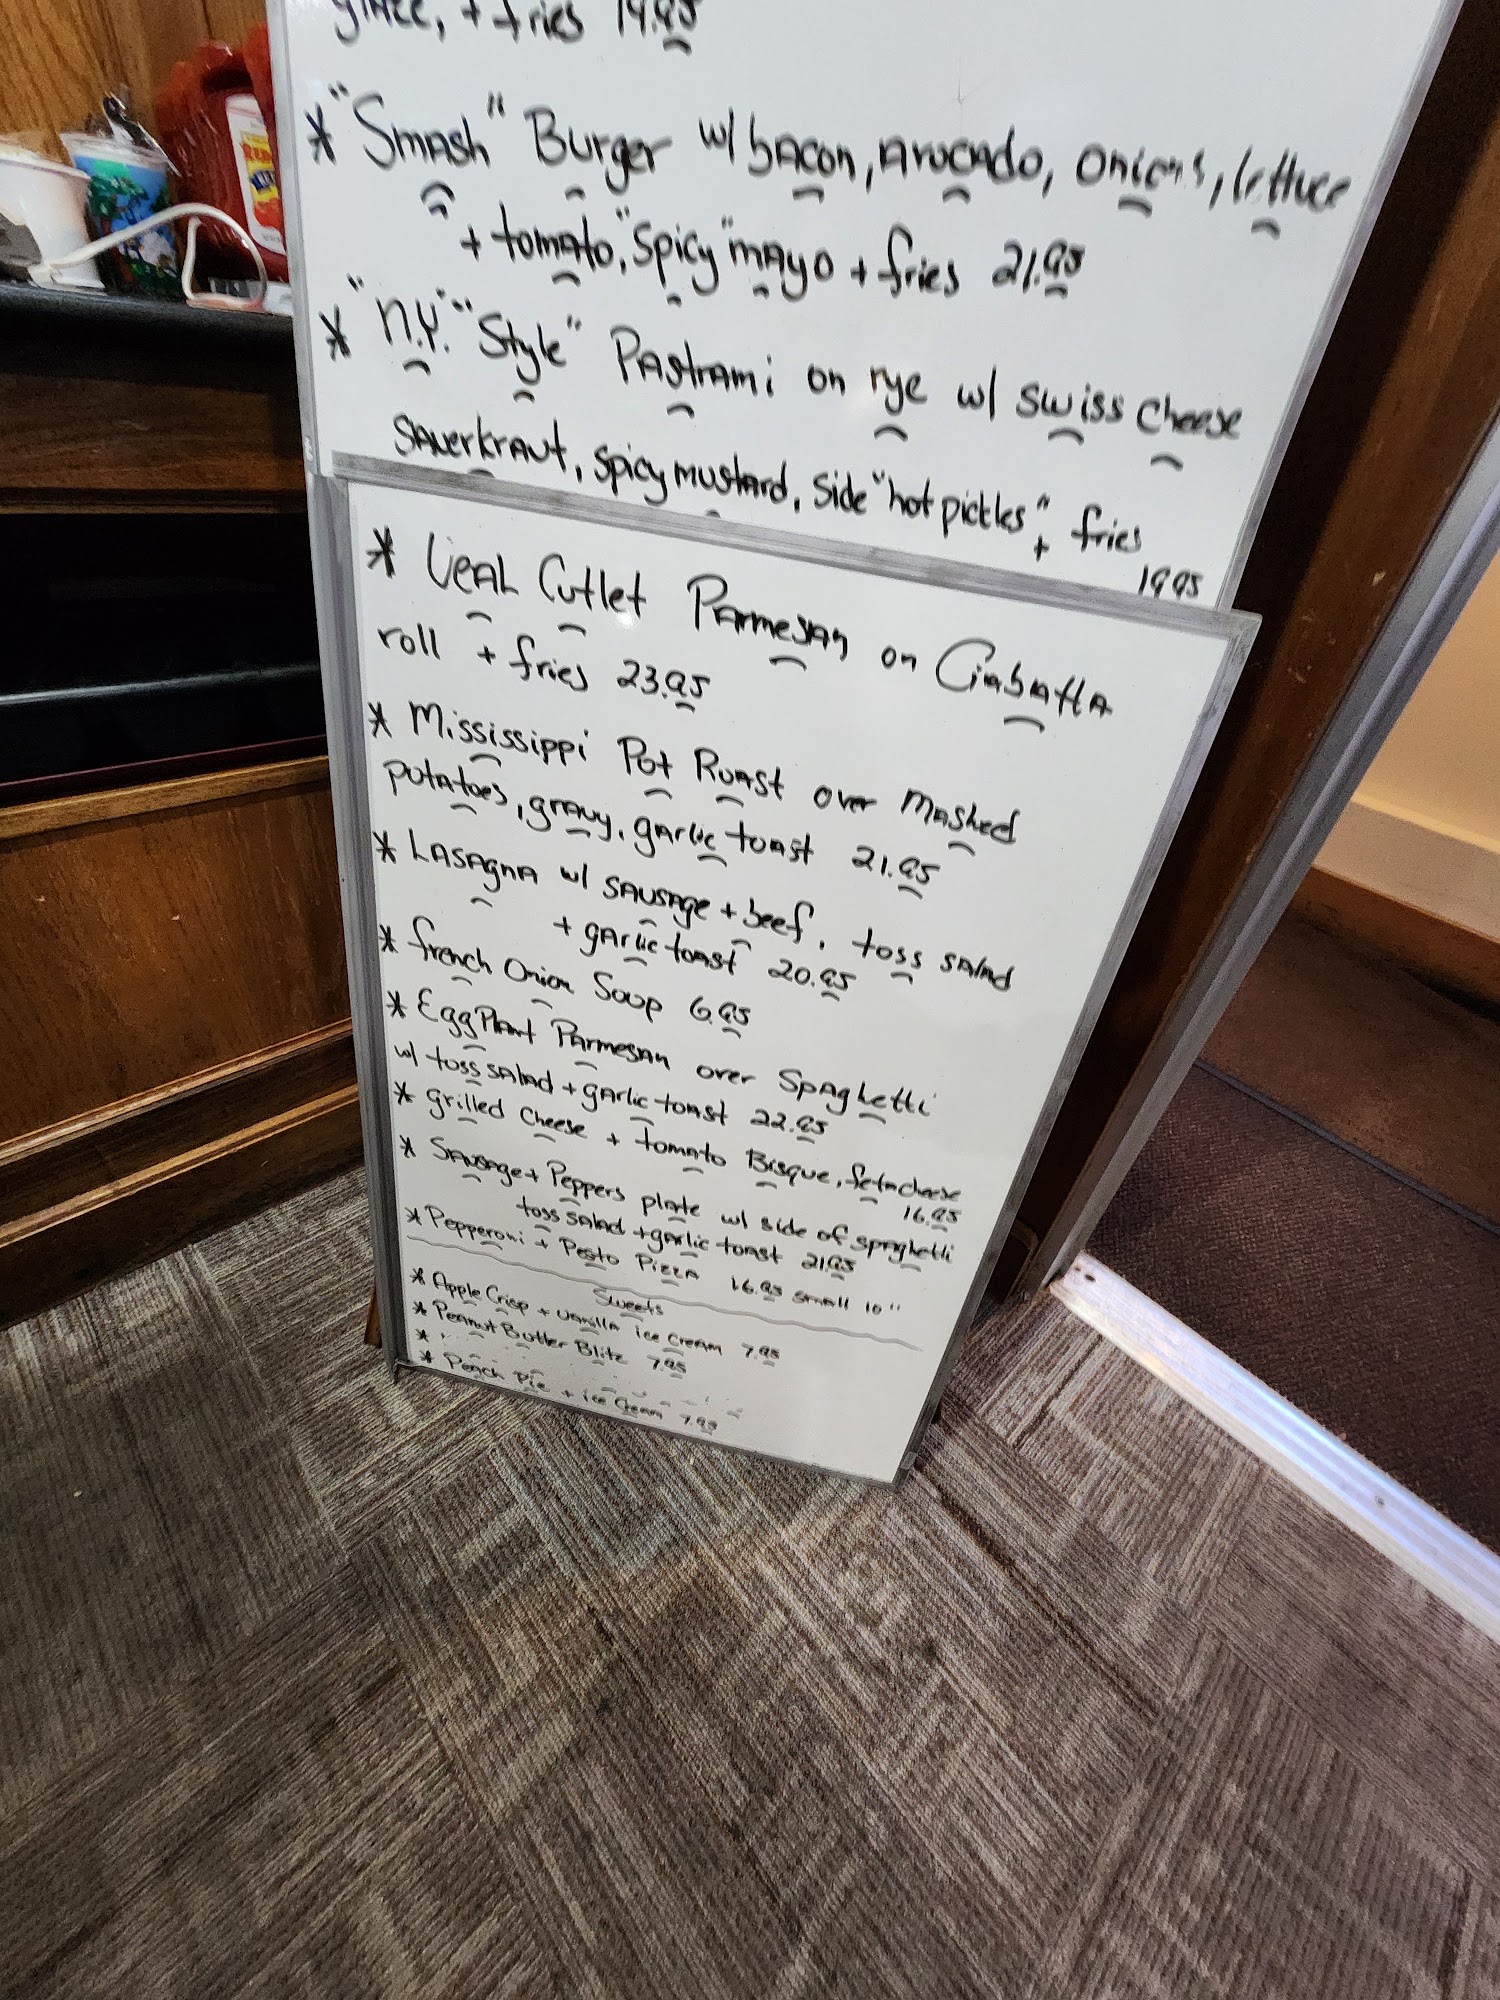 + fries 19.95
* "Smash" Burger w/ bacon, avocado, onions, lettuce
+ tomato, "Spicy" mayo + fries 21.95
* "N.Y." "Style" Pastrami on rye w/ swiss cheese
sauerkraut, spicy mustard, side "hot pickles" + fries
19.95
* Veal Cutlet Parmesan on Ciabatta
roll + fries 23.95
* Mississippi Pot Roast over Mashed
potatoes, gravy, garlic toast 21.95
* Lasagna w/ sausage + beef, toss salad
+ garlic toast 20.95
* french Onion Soup 6.95
* EggPlant Parmesan over Spaghetti
w/ toss salad + garlic toast 22.95
* grilled Cheese + tomato Bisque, feta cheese
16.95
* Sausage + Peppers plate w/ side of spaghetti
toss salad + garlic toast 21.95
* Pepperoni + Pesto Pizza 16.95 small 10"
Sweets
* Apple Crisp + vanilla ice Cream 7.95
* Peanut Butter Blitz 7.95
*
* Peach Pie + ice Cream 7.95